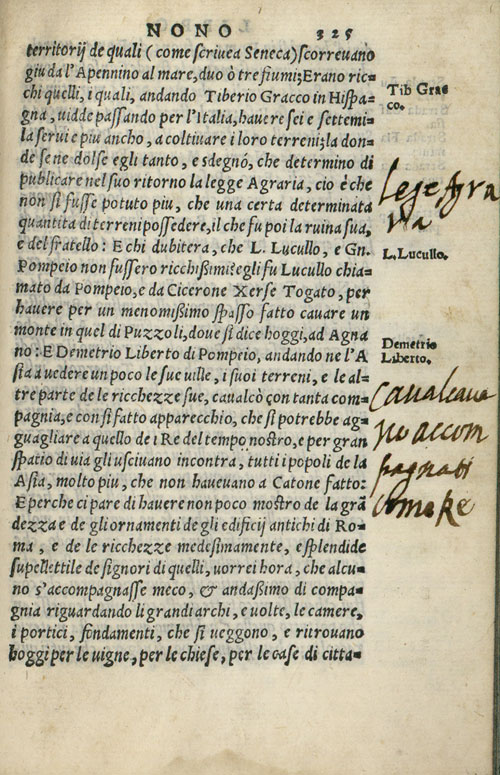 NONO 325
territorij de quali ( come scriuea Seneca) scorreuano
giu da l'Apennino al mare, duo ò tre fiumi; Erano ric=
chi quelli, i quali, andando Tiberio Gracco in Hispa=
Tib Grac
co.
gna, uidde passando per l'Italia, hauere sei e settemi=
la serui e piu ancho, a coltiuare i loro terreni; la don=
de se ne dolse egli tanto, e sdegnò, che determino di
publicare nel suo ritorno la legge Agraria, cio è che
lege Agra
ria
non si fusse potuto piu, che una certa determinata
quantita di terreni possedere, il che fu poi la ruina sua,
e del fratello: E chi dubitera, che L. Lucullo, e Gn.
L. Lucullo.
Pompeio non fussero ricchißimi? egli fu Lucullo chia=
mato da Pompeio, e da Cicerone Xerse Togato, per
hauere per un menomißimo spasso fatto cauare un
monte in quel di Puzzoli, doue si dice hoggi, ad Agna
no: E Demetrio Liberto di Pompeio, andando ne l'A
Demetrio
Liberto.
sia a uedere un poco le sue uille, i suoi terreni, e le al=
tre parte de le ricchezze sue, caualcò con tanta com=
caualcaua
pagnia, e con si fatto apparecchio, che si potrebbe ag=
no accom
guagliare a quello de i Re del tempo nostro, e per gran
spatio di uia gli usciuano incontra, tutti i popoli de la
pagnati
Asia, molto piu, che non haueuano a Catone fatto:
E perche ci pare di hauere non poco mostro de la grã
come Re
dezza e de gli ornamenti de gli edificij antichi di Ro=
ma, e de le ricchezze medesimamente, e splendide
supellettile de signori di quelli, uorrei hora, che alcu=
no s'accompagnasse meco, & andaßimo di compa=
gnia riguardando li grandi archi, e uolte, le camere,
i portici, fondamenti, che si ueggono, e ritrouano
hoggi per le uigne, per le chiese, per le case di citta=